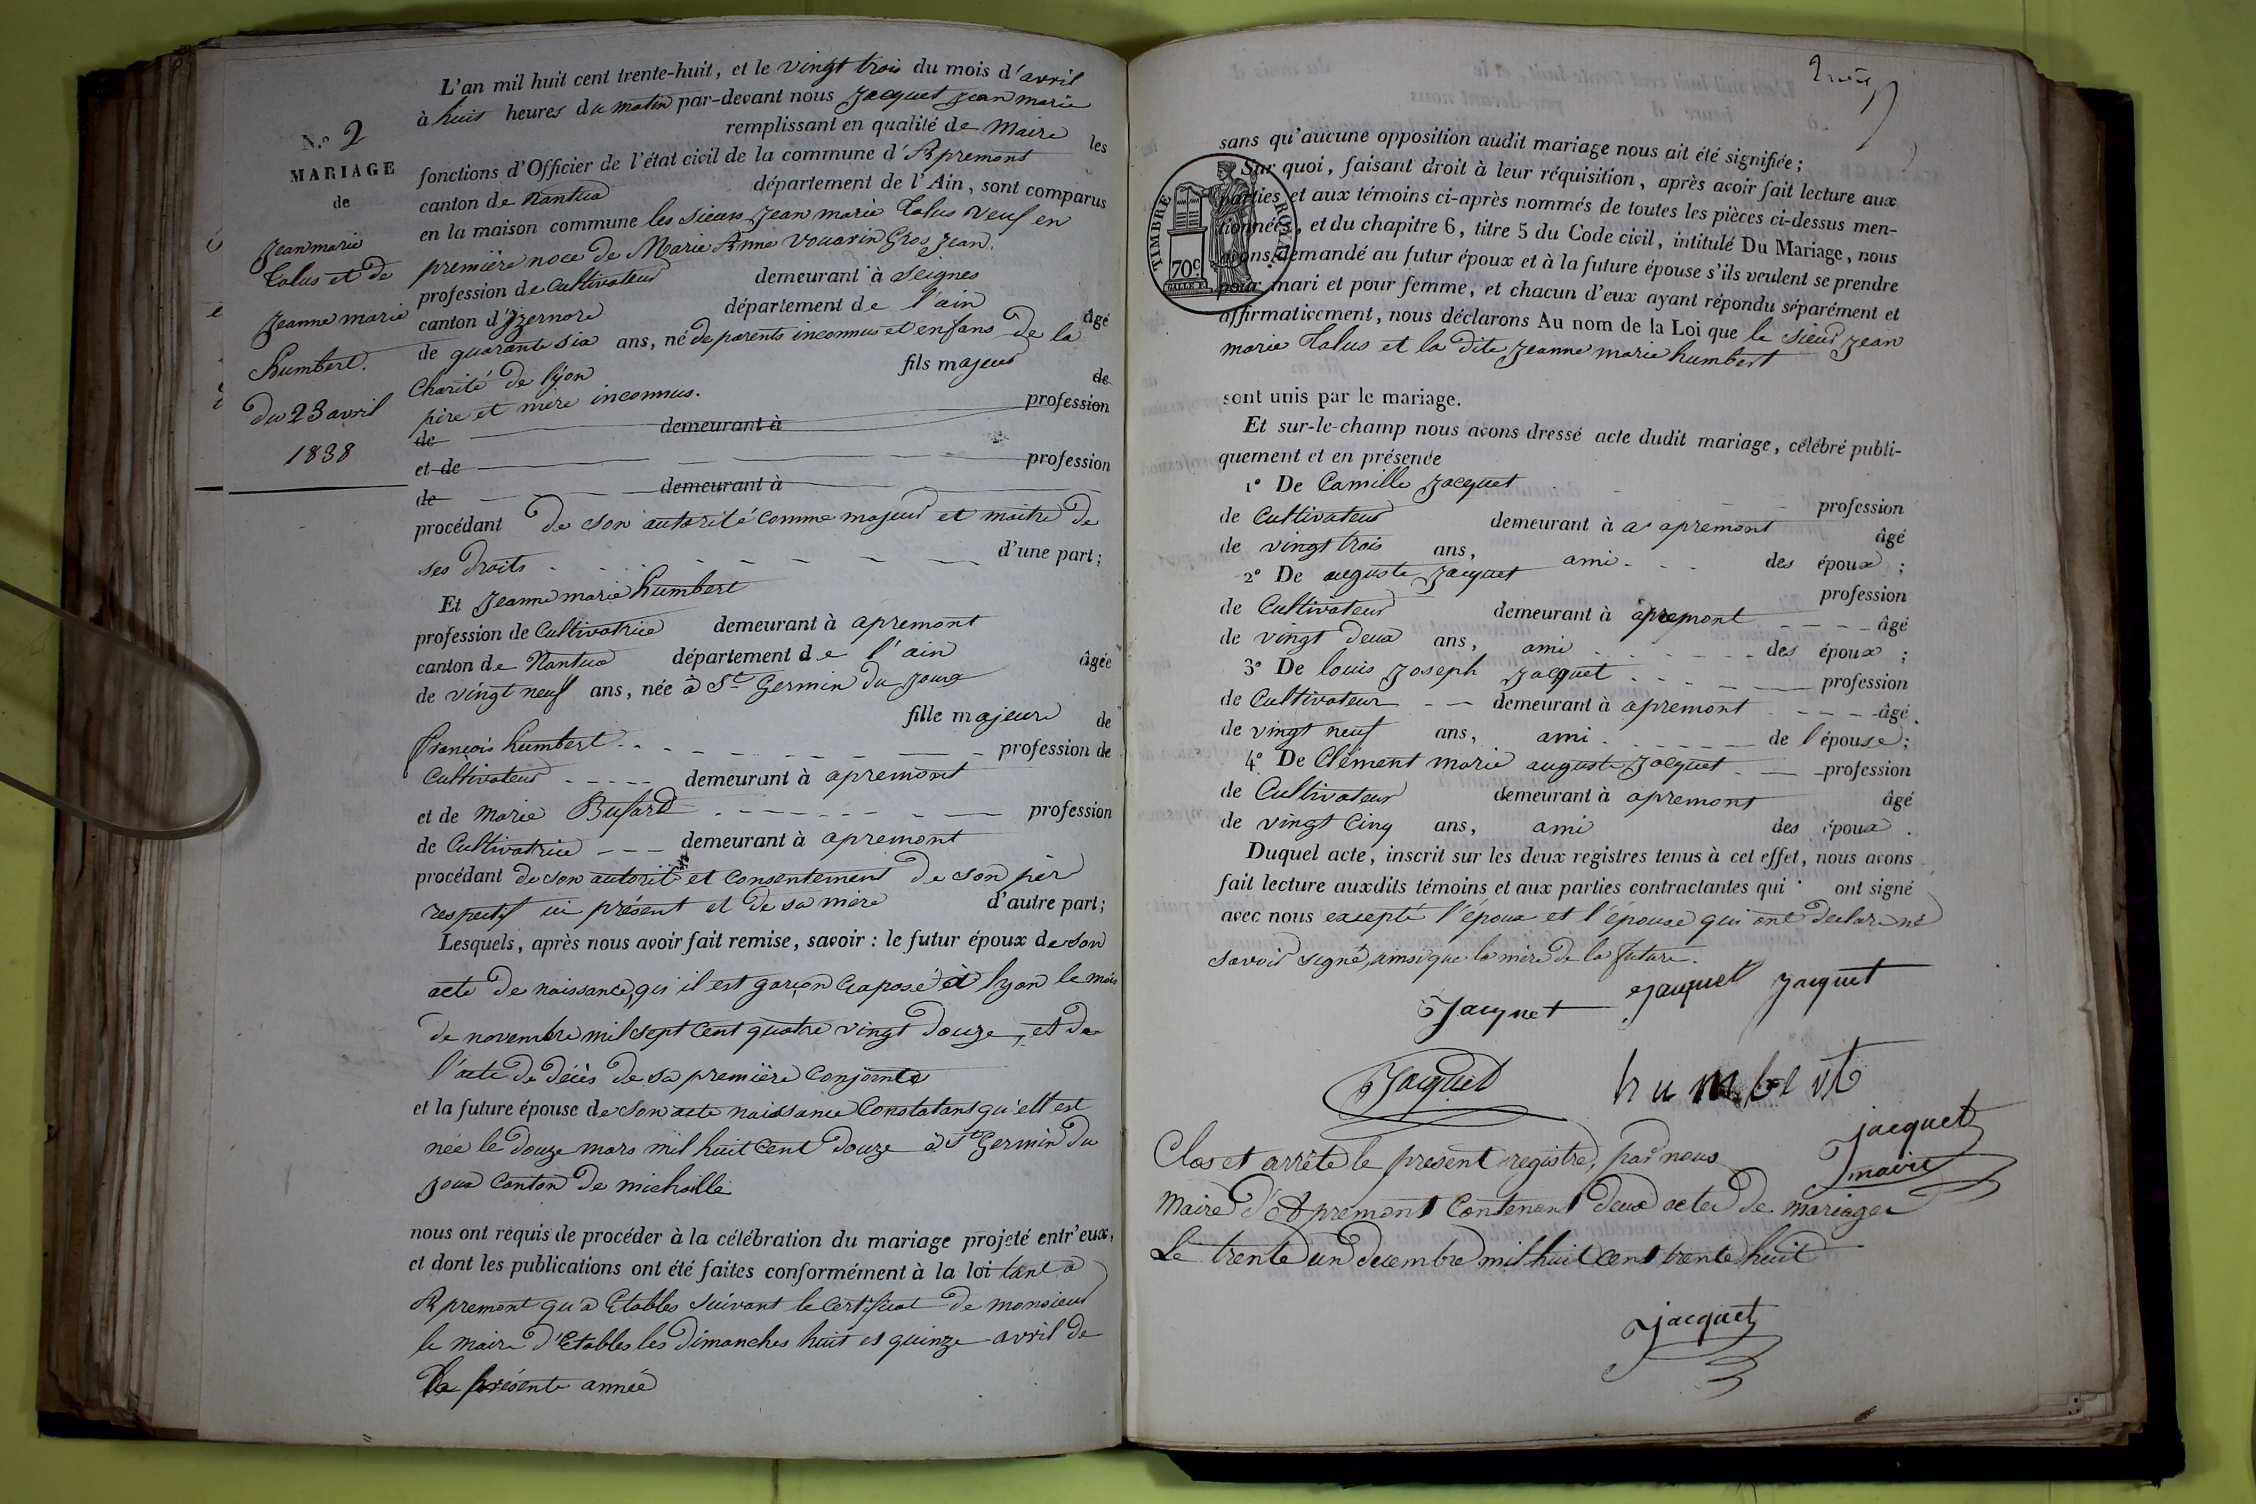 N.º 2
MARIAGE
de
Jeanmarie
Talus et de
Jeanne marie
humbert.
Du 23 avril
1838
L'an mil huit cent trente-huit, et le vingt trois du mois d'avril
à huit heures du matin par-devant nous Jacquet Jean marie
remplissant en qualité de Maire les
fonctions d'Officier de l'état civil de la commune d'Apremont
canton de Nantua département de l'Ain, sont comparus
en la maison commune les sieurs Jean marie Talus veuf en
première noce de Marie Anne Vouarin Gros Jean.
profession de Cultivateur demeurant à Seignes
canton d'Izernore département de l'ain âgé
de quarante six ans, né de parents inconnus et enfans de la
Charité de lyon fils majeur de
père et mère inconnus. profession
de demeurant à
et de profession
de demeurant à
procédant de son autorité comme majeur et maitre de
ses droits d'une part;
Et Jeanne marie humbert
profession de Cultivatrice demeurant à apremont
canton de Nantua département de l'ain âgée
de vingt neuf ans, née à St Germin du Joux
fille majeure de
françois humbert profession de
Cultivateur demeurant à apremont
et de marie Bufard profession
de Cultivatrice demeurant à apremont
procédant de son autorité et consentement de son pèr
respectif ici présent et de sa mère d'autre part;
Lesquels, après nous avoir fait remise, savoir : le futur époux de son
acte de naissance, qis il est garçon Exposé à lyon le mois
de novembre mil sept cent quatre vingt douze, et de
l'acte de décès de sa première conjointe
et la future épouse de son acte naissance Constatant qu'ell est
née le douze mars mil huit cent douze à St Germin du
joux canton de michaille
nous ont requis de procéder à la célébration du mariage projeté entr'eux,
et dont les publications ont été faites conformément à la loi tant a
Apremont qu'a Etables suivant le certificat de monsieur
le maire d'Etables les dimanches huit et quinze avril de
la présente année
TIMBRE ROYAL
70c
sans qu'aucune opposition audit mariage nous ait été signifiée;
Sur quoi, faisant droit à leur réquisition, après avoir fait lecture aux
parties et aux témoins ci-après nommés de toutes les pièces ci-dessus men-
tionnées, et du chapitre 6, titre 5 du Code civil, intitulé Du Mariage, nous
avons demandé au futur époux et à la future épouse s'ils veulent se prendre
pour mari et pour femme, et chacun d'eux ayant répondu séparément et
affirmativement, nous déclarons Au nom de la Loi que le sieur Jean
marie Talus et la dite Jeanne marie humbert
sont unis par le mariage.
Et sur-le-champ nous avons dressé acte dudit mariage, célébré publi-
quement et en présence
1º De Camille Jacquet profession
de Cultivateur demeurant à a apremont âgé
de vingt trois ans, ami des époux;
2º De auguste Jacquet profession
de Cultivateur demeurant à apremont âgé
de vingt deux ans, ami des époux;
3º De louis Joseph Jacquet profession
de Cultivateur demeurant à apremont âgé
de vingt neuf ans, ami de l'épouse;
4º De Clément marie auguste Jacquet profession
de Cultivateur demeurant à apremont âgé
de vingt Cinq ans, ami des époux.
Duquel acte, inscrit sur les deux registres tenus à cet effet, nous avons
fait lecture auxdits témoins et aux parties contractantes qui ont signé
avec nous excepté l'époux et l'épouse qui ont declare ne
savoir signé, ainsi que la mère de la future.
Jacquet Jacquet Jacquet
Jacquet humbert
jacquet
maire
Clos et arrêté le present registre, par nous
Maire d'Apremont Contenent deux actes de mariages
Le trente un decembre mil huit cent trente huit
jacquet